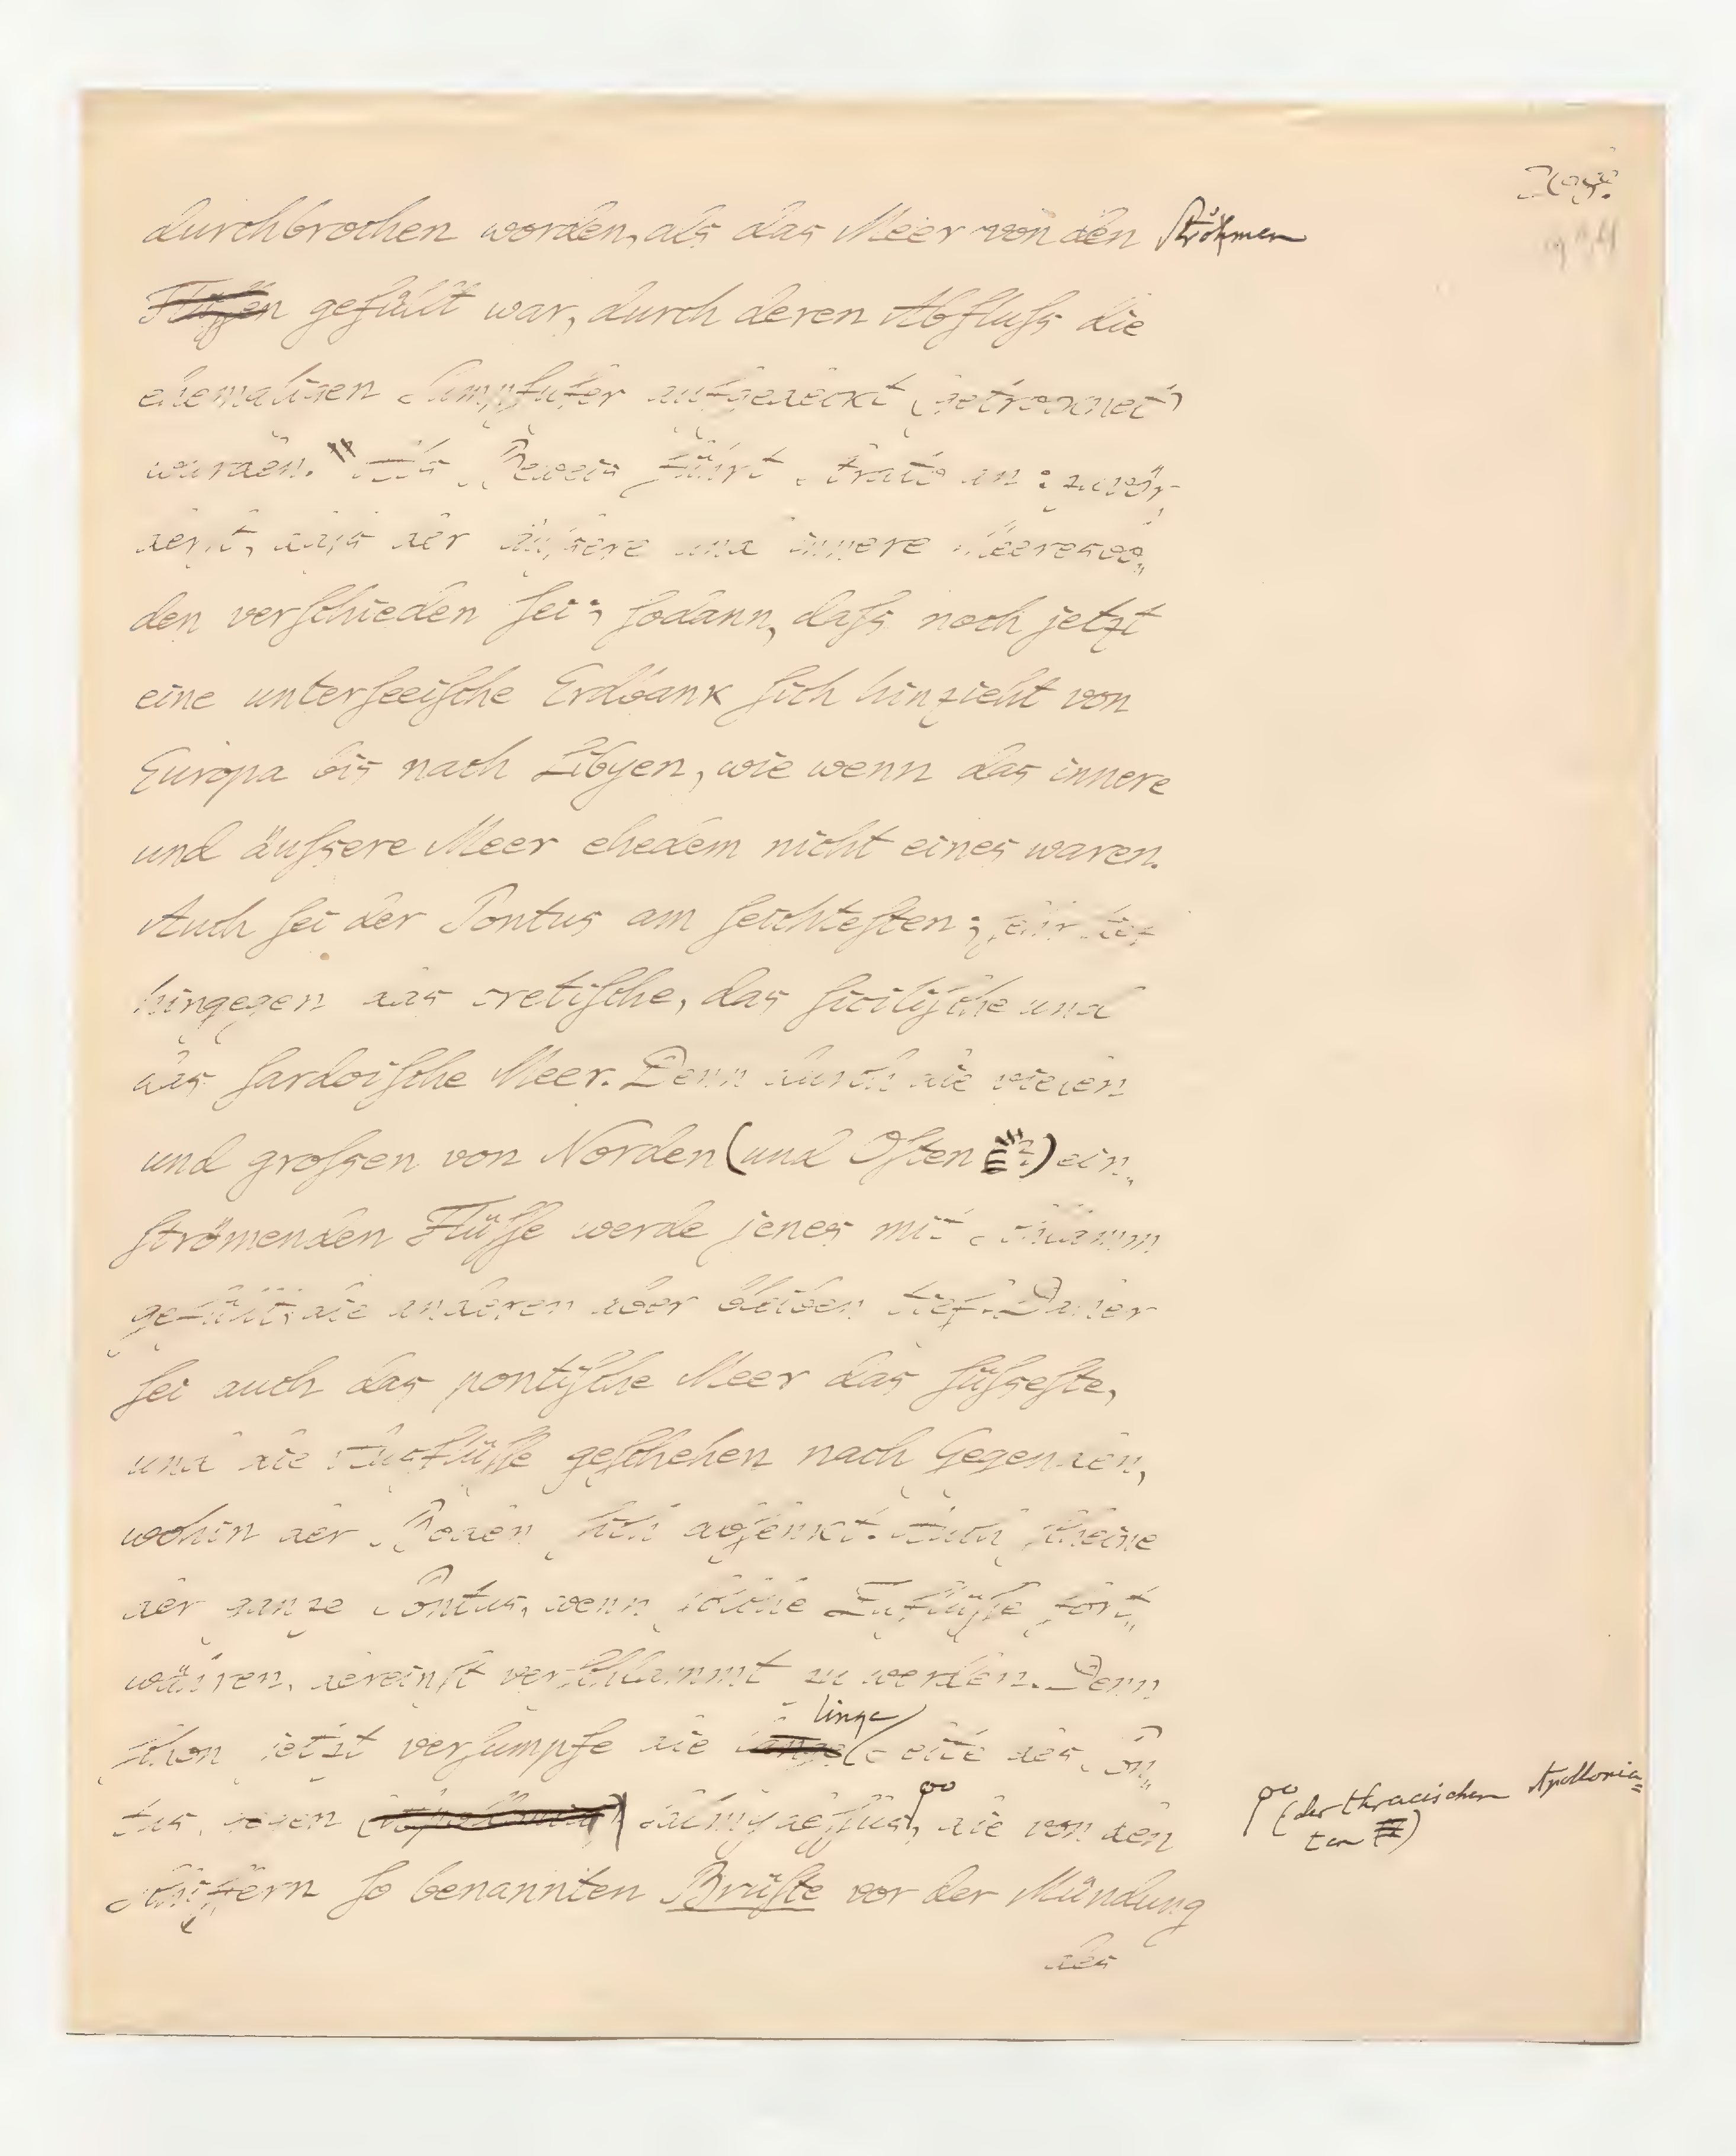 durchbrochen worden, als das Meer von den Ströhmen
Flüſſen gefüllt war, durch deren Abfluſs die
ehemaligen Sumpfufer aufgedeckt (getrocknet)
wurden." Als Beweis führt Strato an: zuvör-
derſt, daſs der äuſsere und innere Meeresbo„
den verſchieden ſei; ſodann, daſs noch jetzt
eine unterſeeiſche Erdbank ſich hinzieht von
Europa bis nach Libyen, wie wenn das innere
und äuſsere Meer ehedem nicht eines waren.
Auch ſei der Pontus am ſeichteſten; ſehr tief
hingegen das cretiſche, das ſiciliſche und
das ſardoiſche Meer. Denn durch die vielen
und groſsen von Norden (und Oſten) ein„
ſtrömenden Flüſſe werde jenes mit Schlamm
gefüllt, die anderen aber bleiben tief. Daher
ſei auch das pontiſche Meer das ſüſseſte,
und die Ausflüſſe geſchehen nach Gegenden,
wohin der Boden ſich abſenkt. Auch ſcheine
der ganze Pontus, wenn ſolche Zuflüſſe fort„
währen, dereinſt verſchlammt zu werden. Denn
linge
ſchon jetzt verſumpfe die Seite des Pon„
tus, gegen Salmydeſſus, die von den
(der thracischen Apollonia=
ten)
Schiffern ſo benannten Brüſte vor der Mündung
des